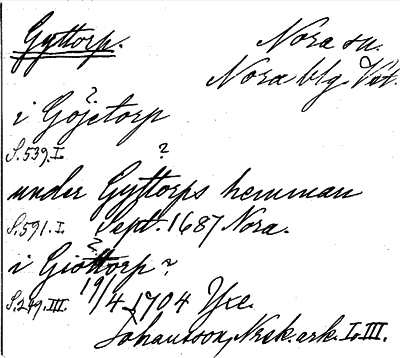 Gyttorp. Nora sn.
Nora blg Vstm.
?
i Göjetorp
S. 539. I.
?
under Gyttorps hemman
S. 591. I. Sept. 1687 Nora.
?
i Giöttorp?
S. 249. III. 19/4 1704 Yxe.
Johansson, Norask. ark. I, III.